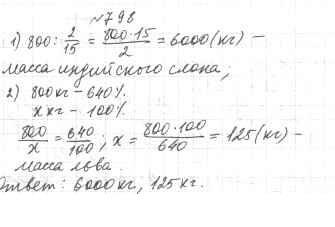 №798
1) 800 : 2/15 = 800·15/2 = 6000 (кг) —
масса индийского слона;
2) 800 кг – 640%
x кг – 100%
800/x = 640/100; x = 800·100/640 = 125 (кг) –
масса льва.
Ответ: 6000 кг, 125 кг.